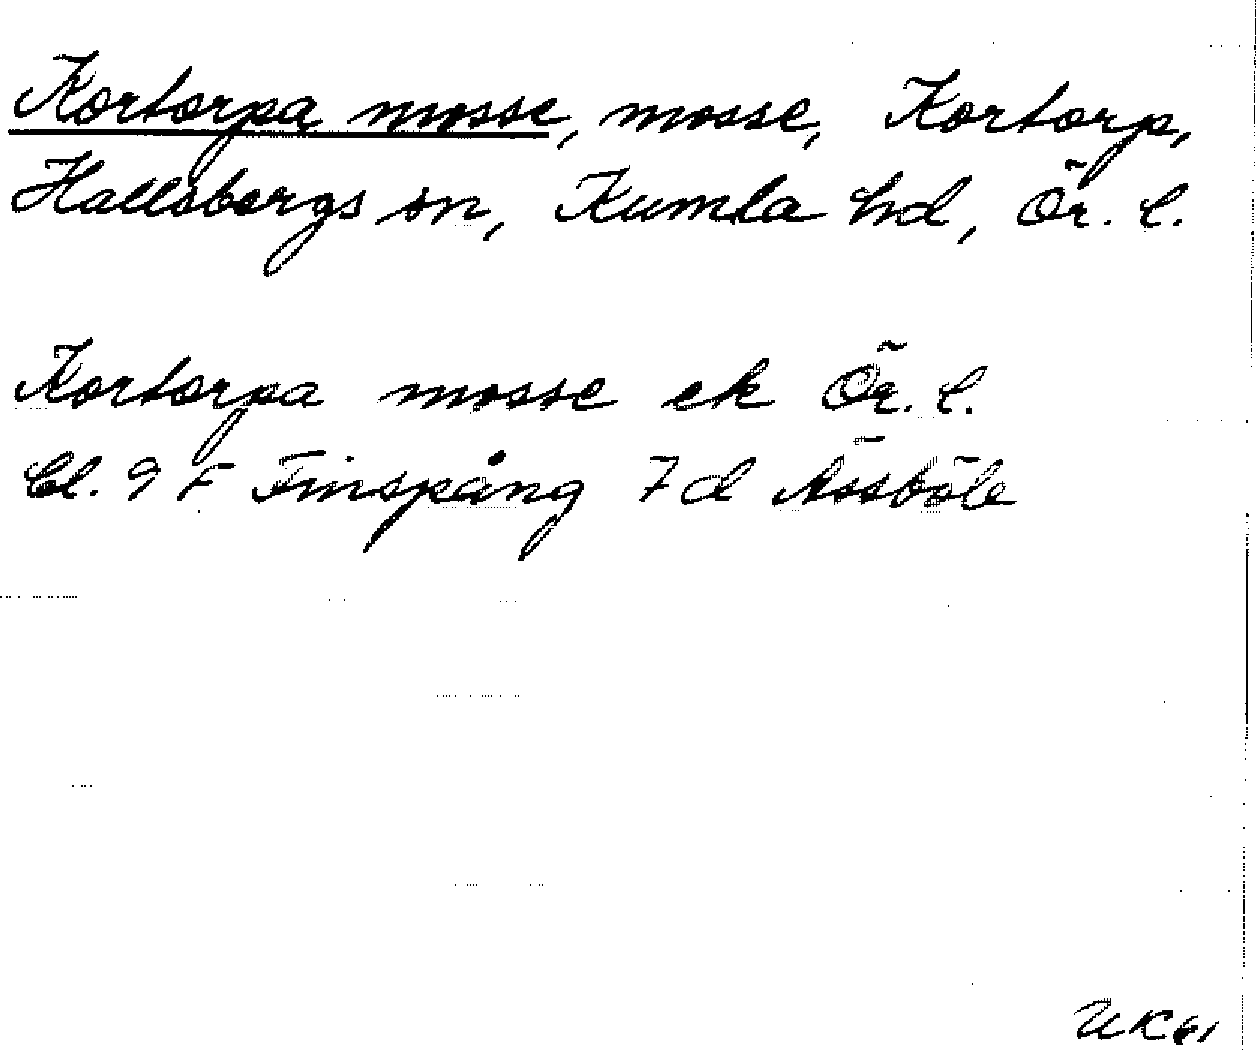 Kortorpa mosse, mosse, Kortorp,
Hallsbergs sn, Kumla hd, Ör. l.
Kortorpa mosse ek Ör. l.
Bl. 9 F Finspång 7 d Åssböle
UK 61